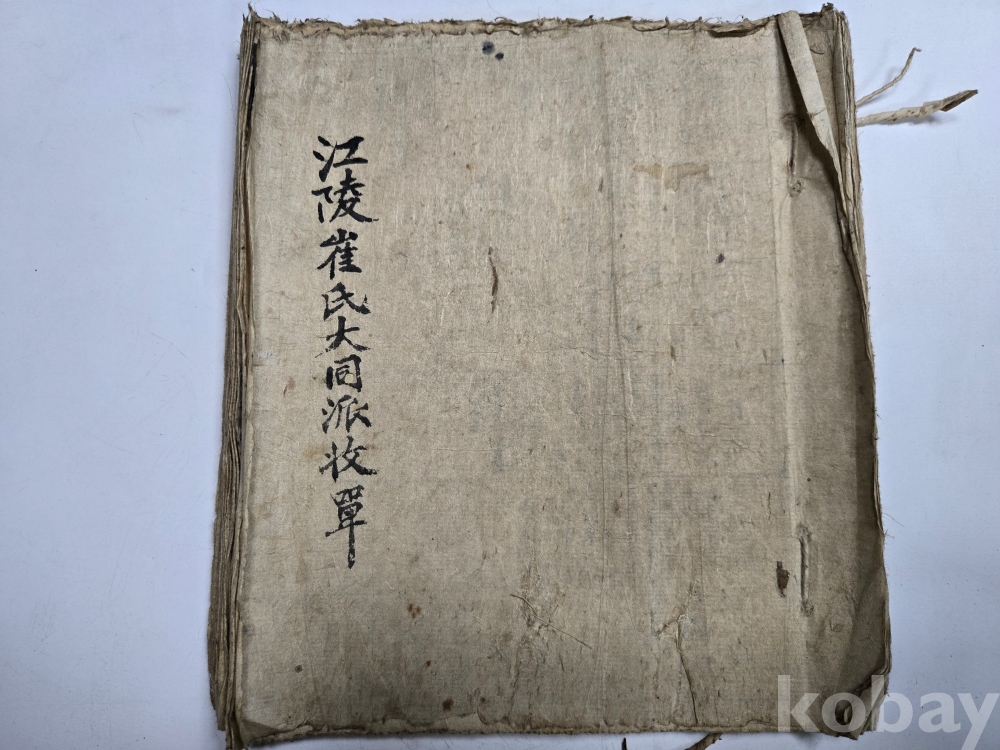 江陵崔氏大同派收單
kobay